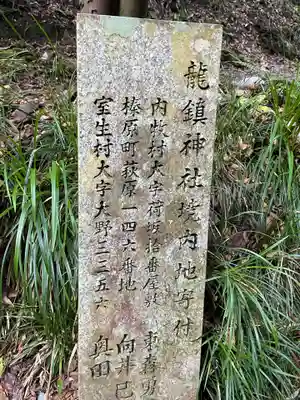 龍鎮神社境内地寄付
内牧村大字荷坂拾番屋敷 東森
榛原町萩原一四六番地 向井
室生村大字大野二二五六 奥田